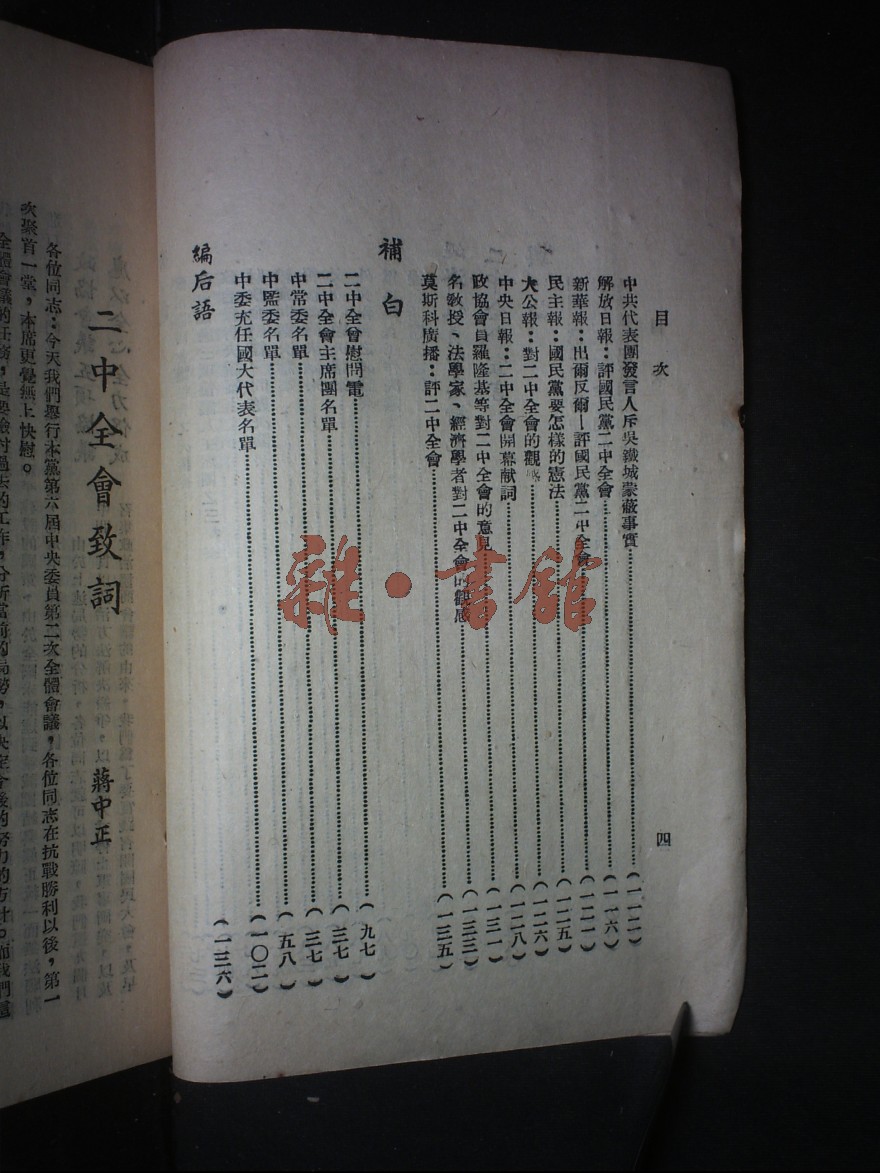 目次 四
中共代表團發言人斥吳鐵城蒙蔽事實……(一一二)
解放日報：評國民黨二中全會……(一一六)
新華報：出爾反爾—評國民黨二中全會……(一二一)
民主報：國民黨要怎樣的憲法……(一二五)
大公報：對二中全會的觀感……(一二六)
中央日報：二中全會開幕献詞……(一二八)
政協會員羅隆基等對二中全會的意見……(一三一)
名敎授、法學家、經濟學者對二中全會的觀感……(一三三)
莫斯科廣播：評二中全會……(一三五)
補白
二中全會慰問電……(九七)
二中全會主席團名單……(三七)
中常委名單……(三七)
中監委名單……(五八)
中委充任國大代表名單……(一〇二)
編后語……(一三六)
二中全會致詞
蔣中正
各位同志：今天我們舉行本黨第六屆中央委員第二次全體會議，各位同志在抗戰勝利以後，第一
次聚首一堂，本席更覺無上快慰。
全體會議的任務，是要檢討過去的工作，分析當前的局勢，以决定今後的努力的方針。
雜·書館